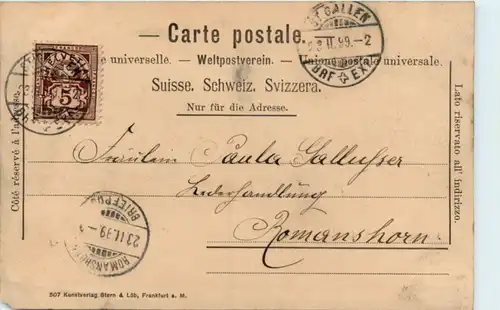 Carte postale.
universelle. — Weltpostverein. — Union postale universale.
Suisse. Schweiz. Svizzera.
Nur für die Adresse.
Côté réservé à l'adresse.
Lato riservato all' indirizzo.
ST. GALLEN
II.99.-2
BRF. EXP.
5
Fräulein Paula Gallusser
Lederhandlung
Romanshorn
BRIEFPOST
23.II.99.
ROMANSHORN
507 Kunstverlag Stern & Löb, Frankfurt a. M.